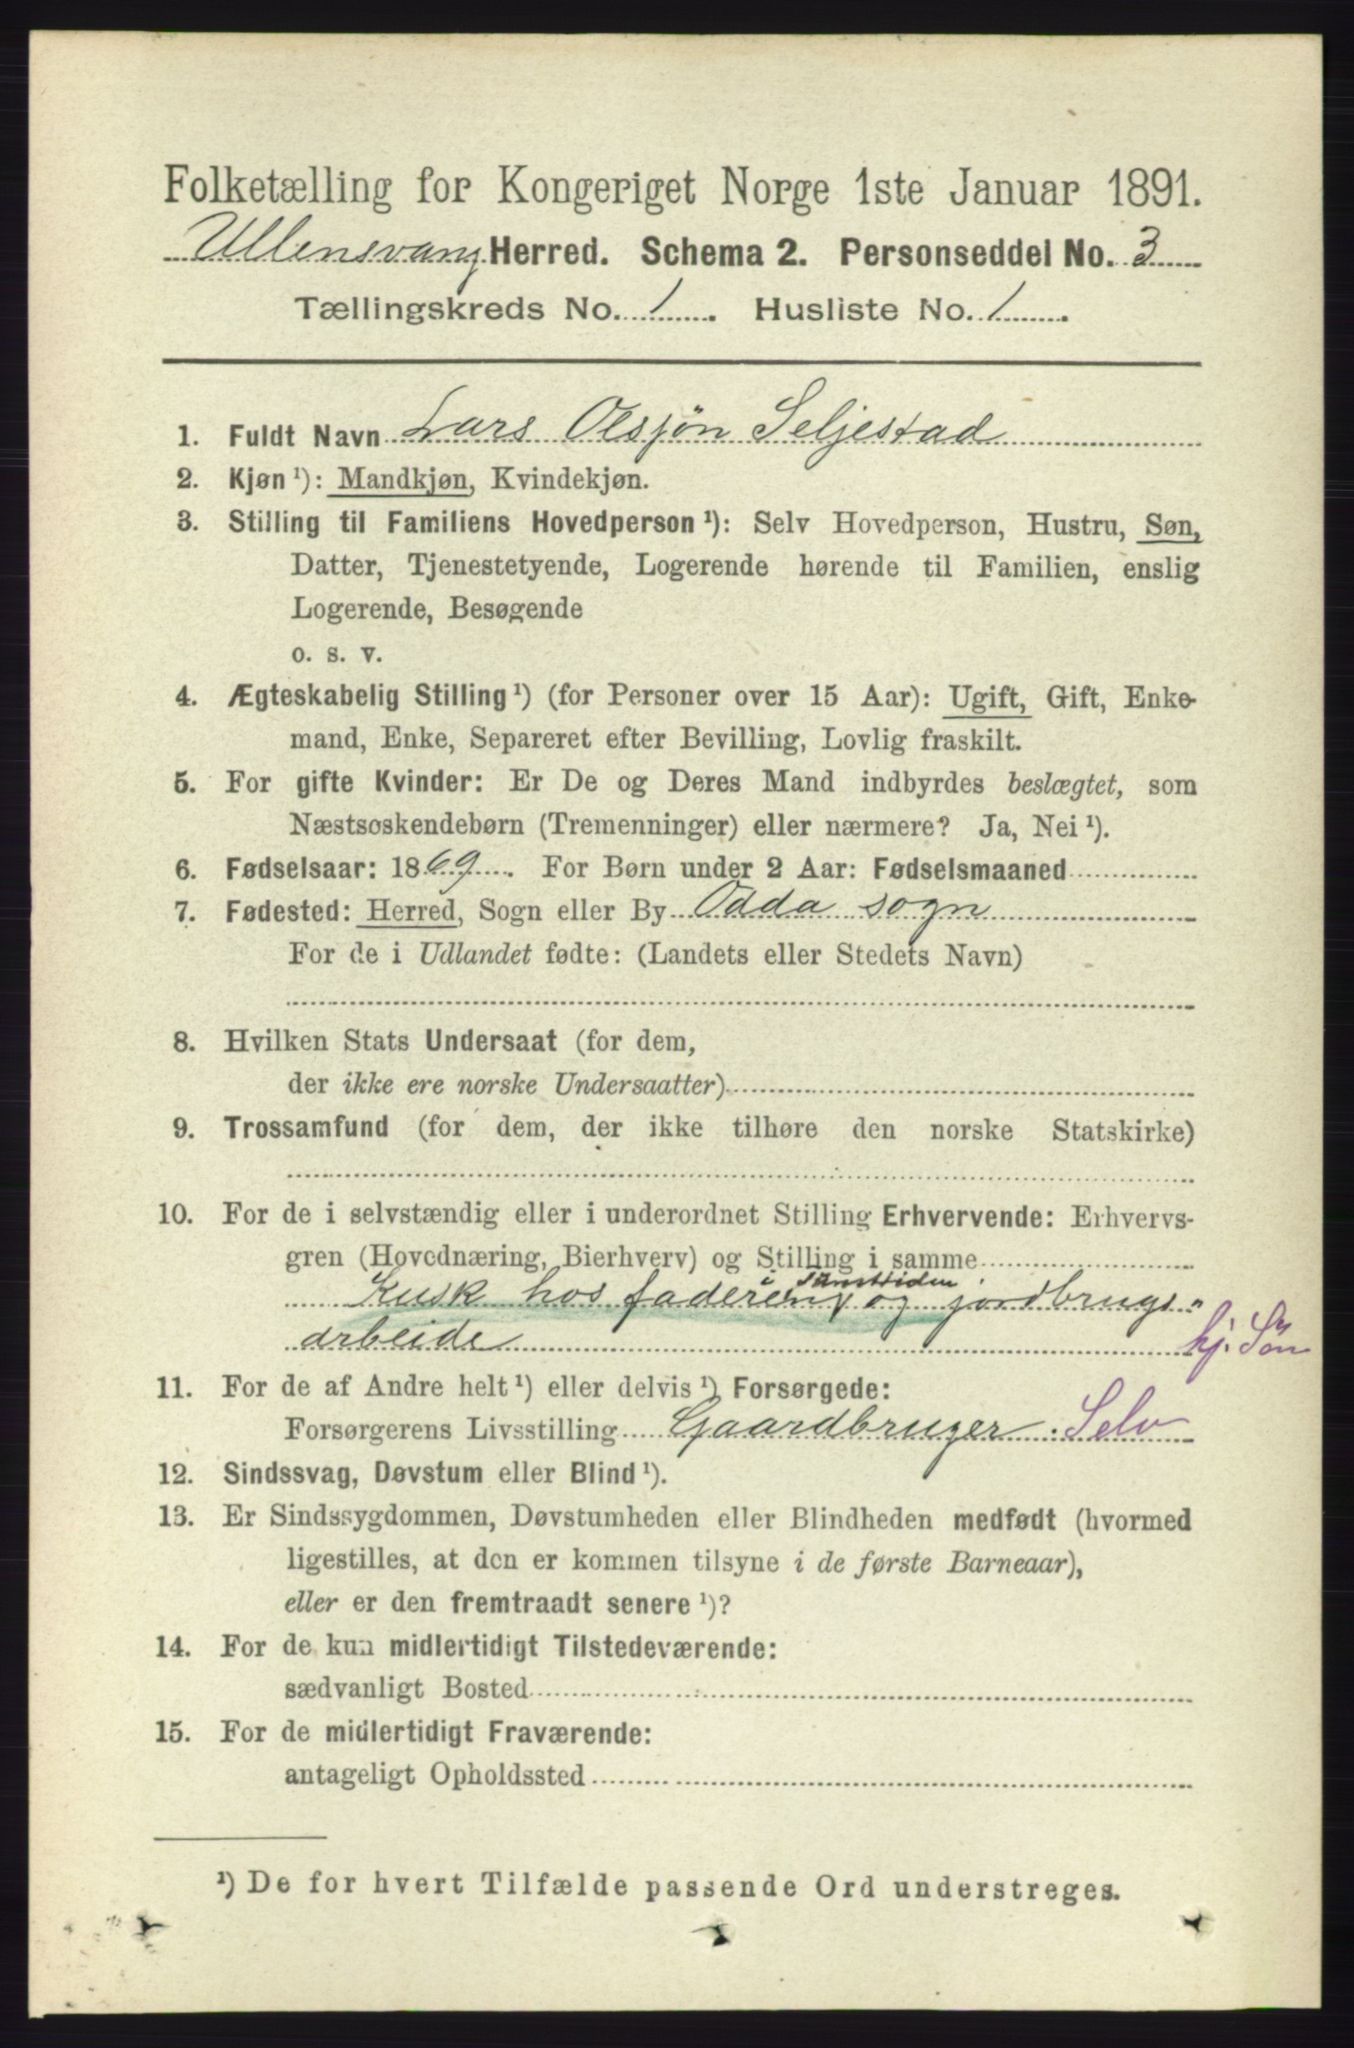 Folketælling for Kongeriget Norge 1ste Januar 1891.
Ullensvang Herred. Schema 2. Personseddel No. 3
Tællingskreds No. 1. Husliste No. 1.
1. Fuldt Navn Lars Olsjøn Seljestad
2. Kjøn ¹): Mandkjøn, Kvindekjøn.
3. Stilling til Familiens Hovedperson ¹): Selv Hovedperson, Hustru, Søn,
Datter, Tjenestetyende, Logerende hørende til Familien, enslig
Logerende, Besøgende
o. s. v.
4. Ægteskabelig Stilling ¹) (for Personer over 15 Aar): Ugift, Gift, Enke-
mand, Enke, Separeret efter Bevilling, Lovlig fraskilt.
5. For gifte Kvinder: Er De og Deres Mand indbyrdes beslægtet, som
Næstsøskendebørn (Tremenninger) eller nærmere? Ja, Nei ¹).
6. Fødselsaar: 1869. For Børn under 2 Aar: Fødselsmaaned
7. Fødested: Herred, Sogn eller By Odda sogn
For de i Udlandet fødte: (Landets eller Stedets Navn)
8. Hvilken Stats Undersaat (for dem,
der ikke ere norske Undersaatter)
9. Trossamfund (for dem, der ikke tilhøre den norske Statskirke)
10. For de i selvstændig eller i underordnet Stilling Erhvervende: Erhvervs-
gren (Hovednæring, Bierhverv) og Stilling i samme
i
Kusk hos faderen og jordbrugs-
arbeide hj. Søn
11. For de af Andre helt ¹) eller delvis ¹) Forsørgede:
Forsørgerens Livsstilling Gaardbruger. Selv
12. Sindssvag, Døvstum eller Blind ¹).
13. Er Sindssygdommen, Døvstumheden eller Blindheden medfødt (hvormed
ligestilles, at den er kommen tilsyne i de første Barneaar),
eller er den fremtraadt senere ¹)?
14. For de kun midlertidigt Tilstedeværende:
sædvanligt Bosted
15. For de midlertidigt Fraværende:
antageligt Opholdssted
¹) De for hvert Tilfælde passende Ord understreges.